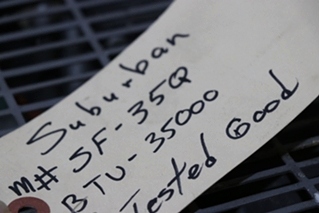 Suburban
M# SF-35Q
BTU-35000
Tested Good